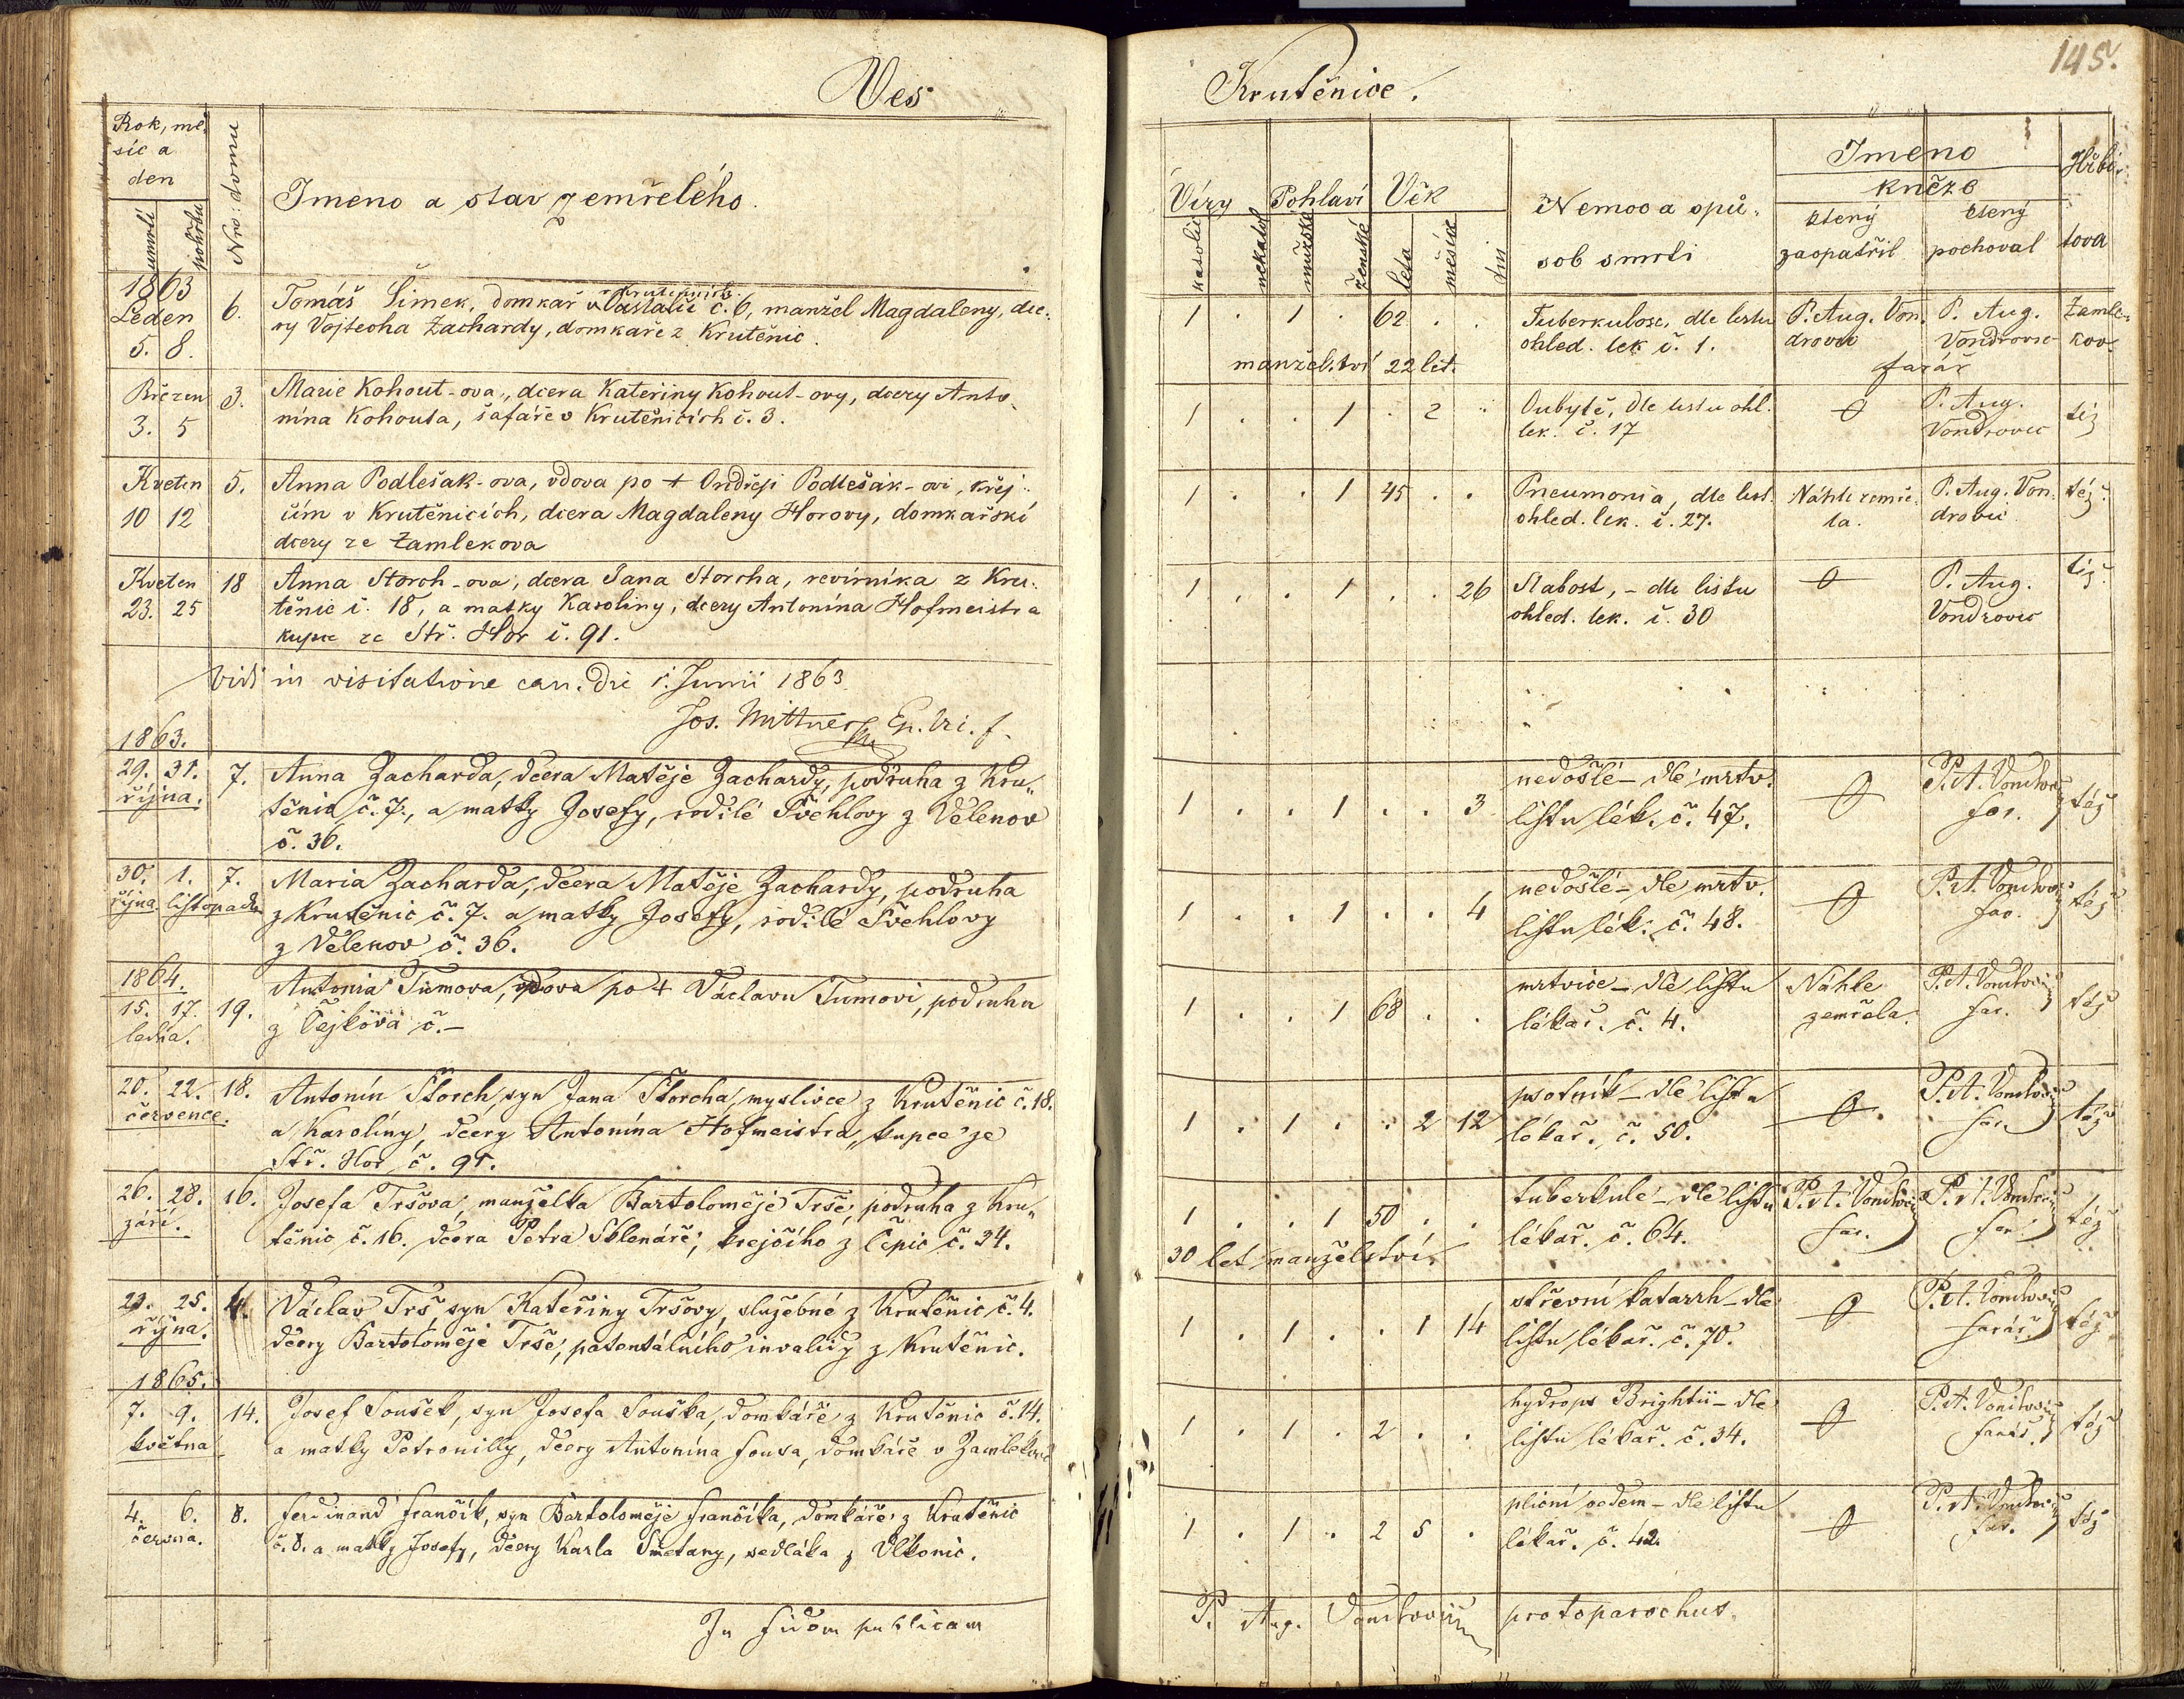 145.
Ves Krutěnice.
Rok, mě-
síc a
den
umrtí
pohřbu
Nro: domu
Jmeno a stav zemřelého.
Víry
katolic
nekatol
Pohlaví
mužské
ženské
Věk
léta
měsíce
dni
Nemoc a spů-
sob smrti
Jmeno
kněze
který
zaopatřil
který
pochoval
Hřbi-
tova
1863
Leden
5. 8.
6.
v Krutěnicích
Tomáš Šimek, domkař č. 6, manžel Magdaleny, dce-
ry Vojtecha Zachardy, domkaře z Krutěnic.
1 . 1 . 62 . .
manželství 22 let.
Tuberkulose, dle listu
ohled. lek č. 1.
P. Aug. Von-
drovic
P. Aug.
Vondrovic
farář
Zamle-
kov-
Březen
3. 5
3.
Marie Kohout-ova, dcera Kateřiny Kohout-ovy, dcery Anto-
nína Kohouta, šafáře v Krutěnicích č. 3.
1 . . 1 . 2 .
Oubytě, dle listu ohl.
lek. č. 17
0
P. Aug.
Vondrovic
též
Kveten
10 12
5.
Anna Podlešak-ova, vdova po + Ondřeji Podlešák-ovi, krej-
čím v Krutěnicích, dcera Magdaleny Horovy, domkařské
dcery ze Zamlekova
1 . . 1 45 . .
Pneumonia, dle list.
ohled. lek. č. 27.
Náhle zemře-
la.
P. Aug. Von-
drovic
též
Kveten
23. 25
18
Anna Storch-ova, dcera Jana Storcha, revírníka z Kru-
těnic č. 18, a matky Karoliny, dcery Antonína Hofmeistra
kupce ze Stř. Hor č. 91.
1 . . 1 . . 26
Slabost, - dle listu
ohled. lek. č. 30
0
P. Aug.
Vondrovic
též
Vidi in visitatione can. die 1. Junii 1863
Jos. Mittner
1863.
29. 31.
října.
7.
Anna Zacharda, dcera Matěje Zachardy, podruha z Kru-
těnic č. 7., a matky Josefy, rodilé Švehlovy z Velenov
č. 36.
1 . . 1 . . 3
nedošlé - dle mrtv.
listu lék. č. 47.
0
P. A. Vondrovic
far.
též
30. 1.
října. listopadu
7.
Maria Zacharda, dcera Matěje Zachardy, podruha
z Krutěnic č. 7. a matky Josefy, rodilé Švehlovy
z Velenov č. 36.
1 . . 1 . . 4
nedošlé - dle mrtv.
listu lék. č. 48.
0
P. A. Vondrovic
far.
též
1864.
15. 17.
ledna.
19.
Antonia Tumova, vdova po + Václavu Tumovi, podruhu
z Čejkova č. -
1 . . 1 68 . .
mrtvice - dle listu
lékař. č. 4.
Náhle
zemřela.
P. A. Vondrovic
far.
též
20. 22.
července.
18.
Antonín Štorch, syn Jana Štorcha, myslivce z Krutěnic č. 18.
a Karolíny, dcery Antonína Hofmeistra, kupce ze
Stř. Hor č. 91.
1 . 1 . . 2 12
psotník - dle listu
lékař. č. 50.
0
P. A. Vondrovic
far.
též
26. 28.
září.
16.
Josefa Tršova, manželka Bartoloměje Trše, podruha z Kru-
těnic č. 16. dcera Petra Sklenáře, krejčího z Čepic č. 34.
1 . . 1 50 . .
30 let manželství.
tuberkule - dle listu
lékař. č. 64.
P. A. Vondrovic
far.
P. A. Vondrovic
far.
též
23. 25.
října.
4.
Václav Trš, syn Kateřiny Tršovy, služebné z Krutěnic č. 4.
dcery Bartoloměje Trše, patentálního invalidy z Krutěnic.
1 . 1 . . 1 14
střevní katarrh - dle
listu lékař. č. 70.
0
P. A. Vondrovic
farář.
též
1865.
7. 9.
května
14.
Josef Soušek, syn Josefa Souška, domkáře z Krutěnic č. 14.
a matky Petronilly, dcery Antonína Fousa, domkáře v Zamlekově
1 . 1 . 2 . .
hydrops Brightii - dle
listu lékař. č. 34.
0
P. A. Vondrovic
farář.
též
4. 6.
června.
8.
Ferdinand Frančík, syn Bartoloměje Frančíka, domkáře z Krutěnic
č. 8. a matky Josefy, dcery Karla Smetany, sedláka z Vlkonic.
1 . 1 . 2 5 .
plicní oedem - dle listu
lékař. č. 42.
0
P. A. Vondrovic
far.
též
In fidem publicam P. Aug. Vondrovic protoparochus.